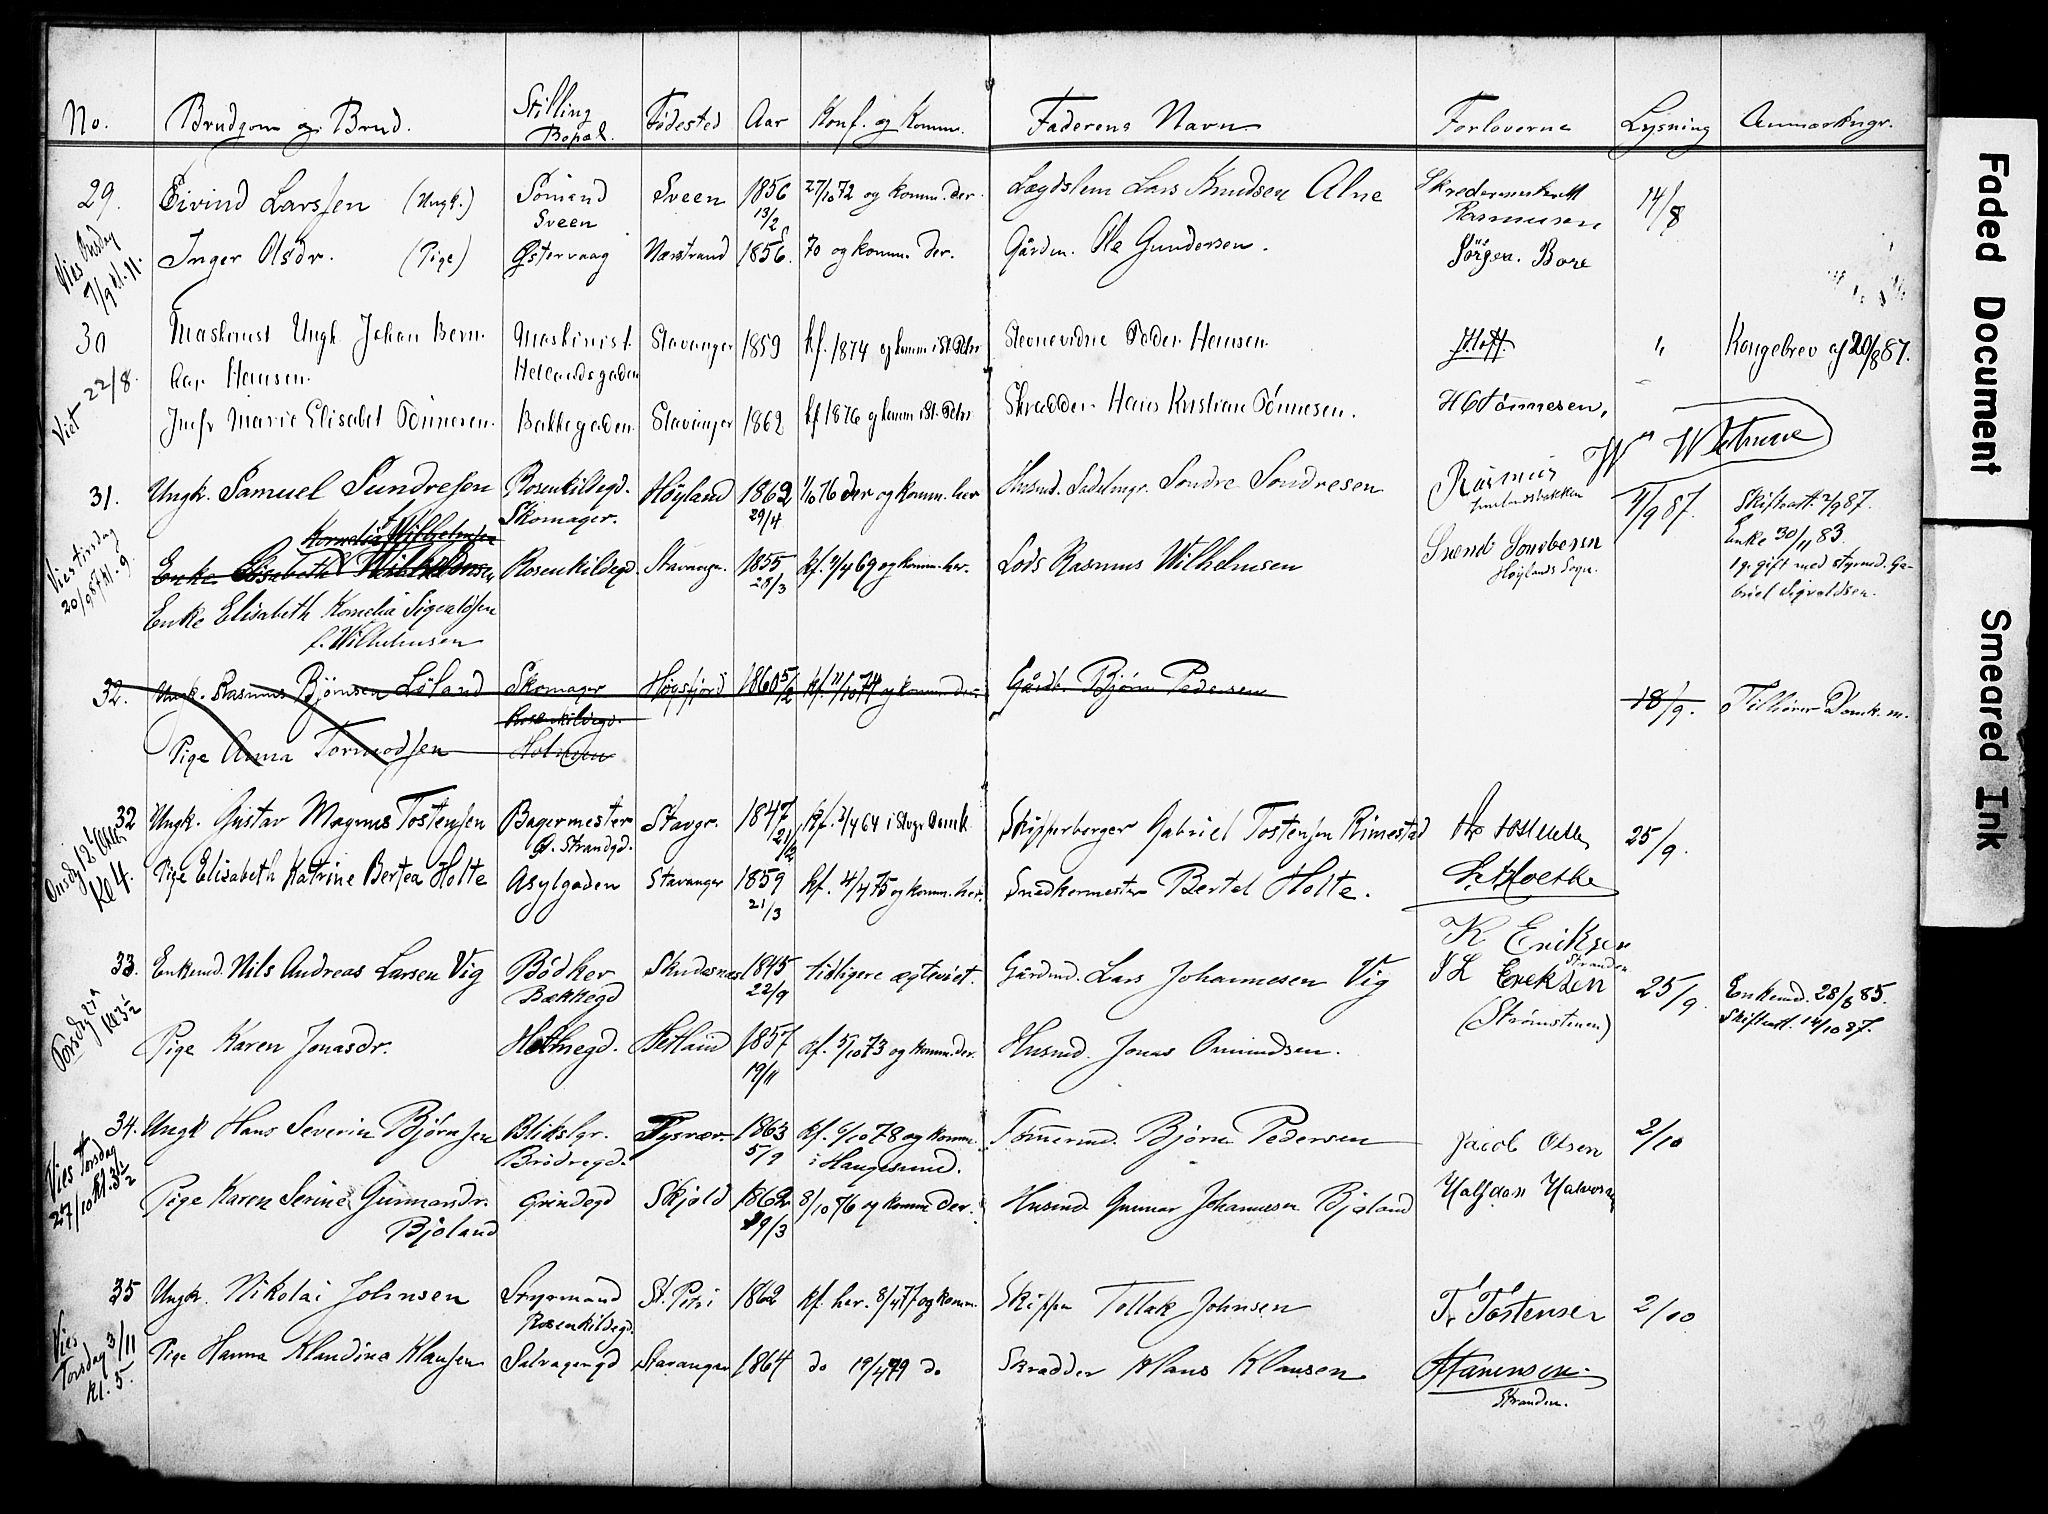 No. Brudgom og Brud. Stilling Bopæl. Fødested Aar Konf. og Komm. Faderens Navn Forloverne Lysning Anmærkngr.
29. Eivind Larssen (Ungk.) Sömand Sveen Sveen 1856 13/2 27/10 72 og komm. der. Lægdslem Lars Knudsen Alne Rasmussen 14/8
Vies Onsdag 7/9 kl. 11.
Inger Olsdr. (Pige) Østervaag Nærstrand 1856. 70 og komm. der. Gårdm. Ole Gundersen. Jörgen Bore
30 Maskinist Ungk. Johan Bern- Maskinist Stavanger 1859 kf. 1874 og komm i St. Petri Stevnevidne Peder Hansen Hoff. " Kongebrev af 20/8 87.
har Hansen. Hetlandsgaden
Viet 22/8.
Jmfr Marie Elisabet Tönnesen. Bakkegaden Stavanger 1862 kf 1876 og komm i St. Petri Skrædder Hans Kristian Tönnesen. H C Tönnesen,
31. Ungk. Samuel Sundresen Rosenkildegd. Skomager. Höyland 1862 29/4 1/10 76 der og komm. her Husmd. Sadelmgr. Sondre Sondresen Rasmus 4/9 87. Skifteatt. 2/9 87.
Vies tirsdag 20/9 87 kl. 9.
Kornelia Wilhelmsen
Enke Elisabeth Rosenkildegd. Stavanger. 1855 28/3 Kf. 4/4 69 og komm. her. Lods Rasmus Wilhelmsen Svend Höylands Sogn. Enke 30/11 83.
1 g. gift med styrmd. Ga-
briel Sigvaldsen.
Enke Elisabeth Kornelia Sigvaldsen
f. Wilhelmsen
32. Ungk. Rasmus Björnsen Löland Skomager Rosenkildegd. Högsfjord 1860 5/2 kf. 11/10 74 og komm. der. Gårdb. Björn Pedersen 18/9. Tilhører Domk. m.
Pige Anna Tormodsen Holmen
32 Ungk. Gustav Magnus Tostensen Bagermester Ö. Strandgd. Stavgr. 1847 21/12 Kf. 3/4 64 i Stvgr Domk. Skipperborger Gabriel Tostensen Rimestad 25/9.
Onsdg 12 Kl 4.
Pige Elisabeth Katrine Bertea Holte Asylgaden Stavanger 1859 21/3 kf. 4/4 75 og komm. her. Snedkermester Bertel Holte.
33. Enkemd. Nils Andreas Larsen Vig Bödker Bækkegd Skudesnæs 1845 22/9 tidligere ægteviet. Gårdmd. Lars Johannesen Vig K Eriksen Stranden 25/9 Enkemd. 28/8 85.
Torsdag 27 Kl 3½
I L Eriksen (Strömstenen) Skifteatt. 14/10 87.
Pige Karen Jonasdr. Hetland 1857 19/11 kf. 5/10 73 og komm. der. Husmd. Jonas Omundsen.
34. Ungk Hans Severin Björnsen Blikslgr. Brödregd. Tysvær 1863 5/9 kf. 6/10 78 og komm. i Haugesund. Tömmermd. Björn Pedersen Jacob Olsen 2/10
Vies Torsdag 27/10 Kl. 3½
Pige Karen Serine Gunnarsdr. Bjöland Grindegd Skjold 1862 29/3 8/10 76 og komm der. Husmd Gunnar Johannesen Bjöland Halfdan Halvorsen
35 Ungk. Nikolai Johnsen Styrmand Rosenkildegd. St. Petri 1862 kf. her. 8/4 77 og komm. Skipper Tollak Johnsen T. Tostensen 2/10
Vies Torsdag 3/11 kl. 5.
Pige Hanna Klandine Klausen Salvagergd Stavanger 1864 do 19/4 79 do Skrædder Klaus Klausen Stranden.
Faded Document
Smeared Ink